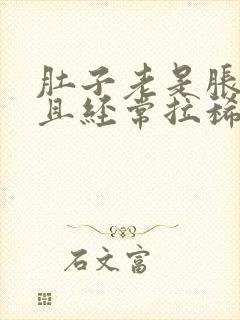 肚子老是胀
且经常拉稀
石文富